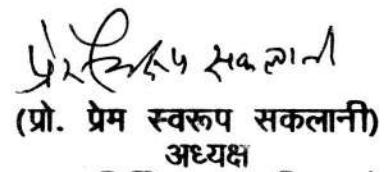 प्रेम स्वरूप सकलानी
(प्रो. प्रेम स्वरूप सकलानी)
अध्यक्ष